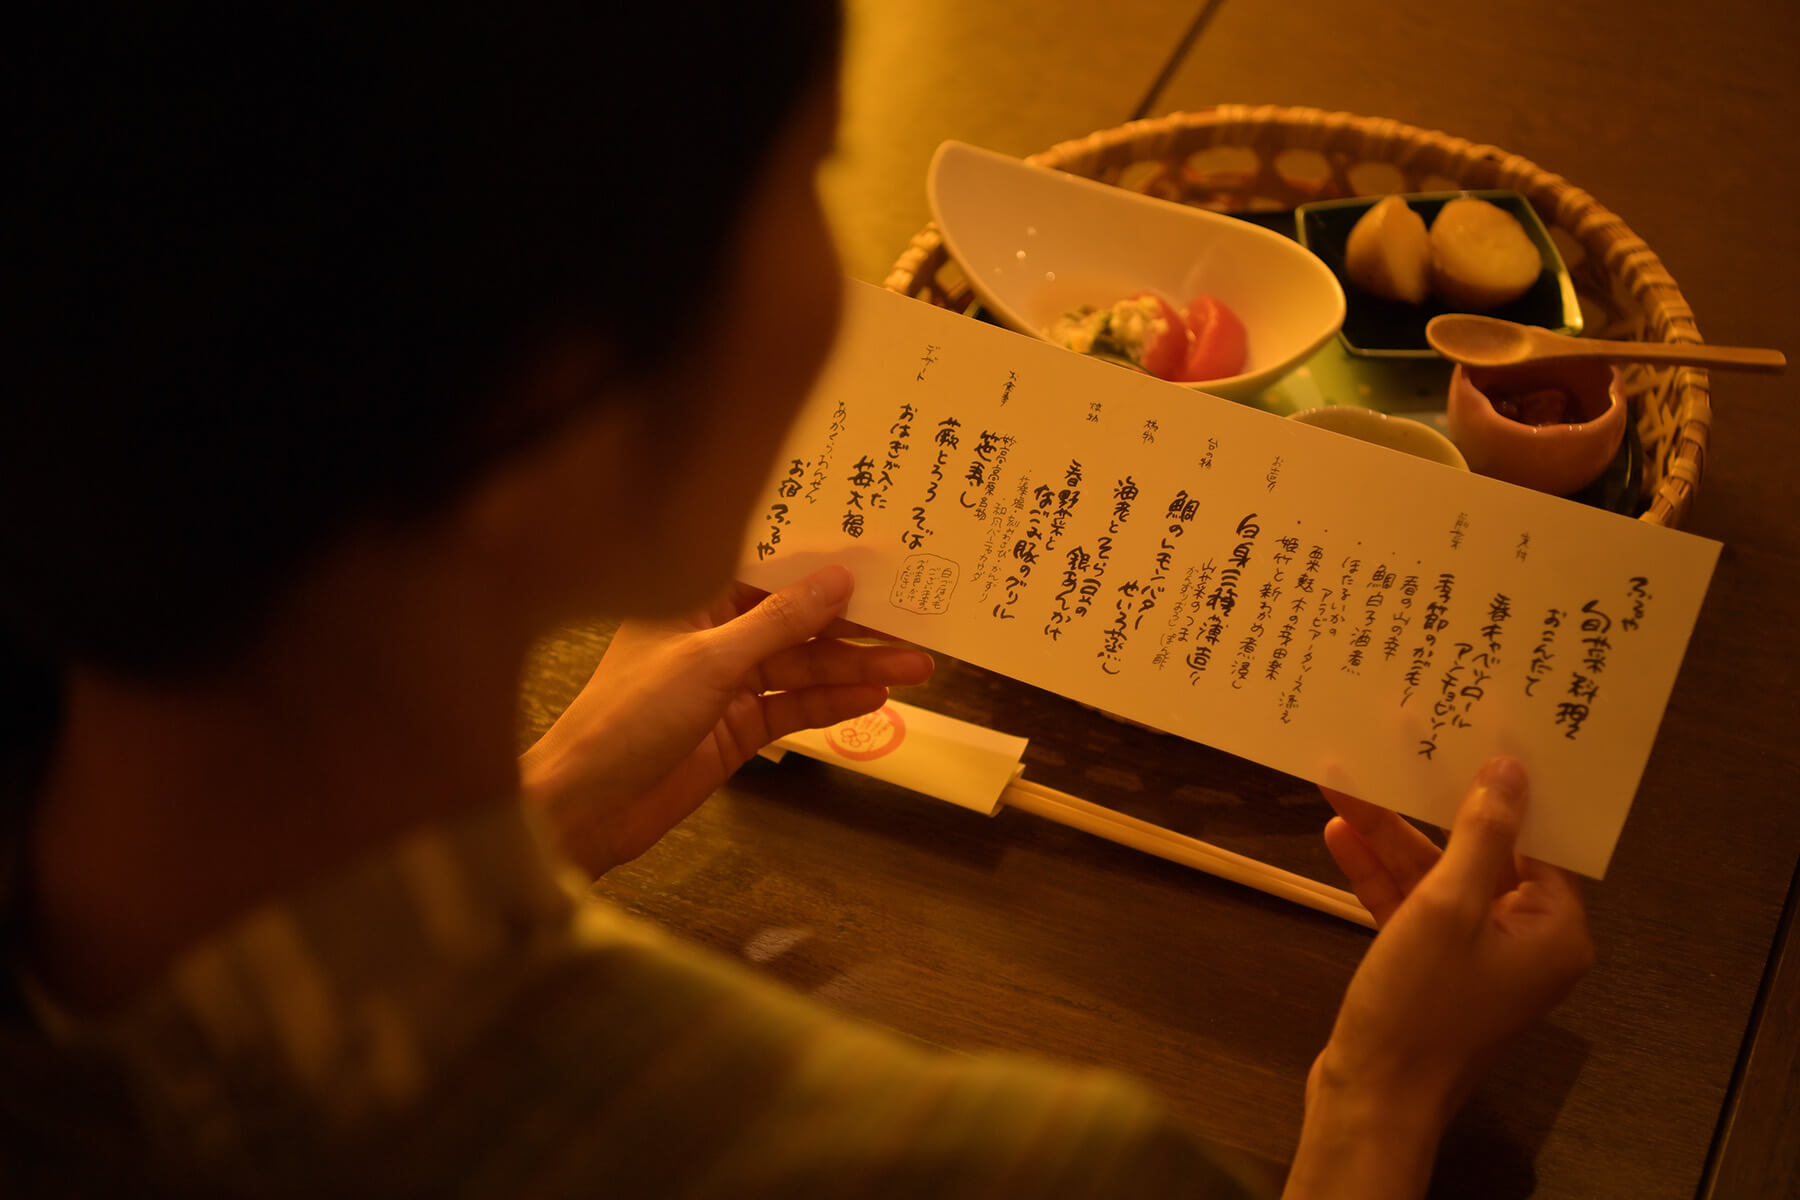 ふるや
旬菜料理
おこんだて
先付
春キャベツロール
アンチョビソース
前菜
季節のがんもり
・春の山の幸
・鯛白子酒煮
・ほたるいかの
アラビアータソース添え
・粟麩木の芽田楽
・姫竹と新わかめ煮浸し
お造り
白身三種の薄造り
山菜のつま
かんずりおろしぽん酢
台の物
鯛のレモンバター
せいろ蒸し
鍋物
海老とそら豆の
銀あんかけ
焼物
春野菜と
なごみ豚のグリル
・藻塩・刻みわさび・かんずり
・和風バーニャカウダ
お食事
妙高高原の名物
笹寿し
蕨とろろそば
白ごはんも
ございます。
お声がけ
ください。
デザート
おはぎが入った
苺大福
あかくらおんせん
お宿ふるや